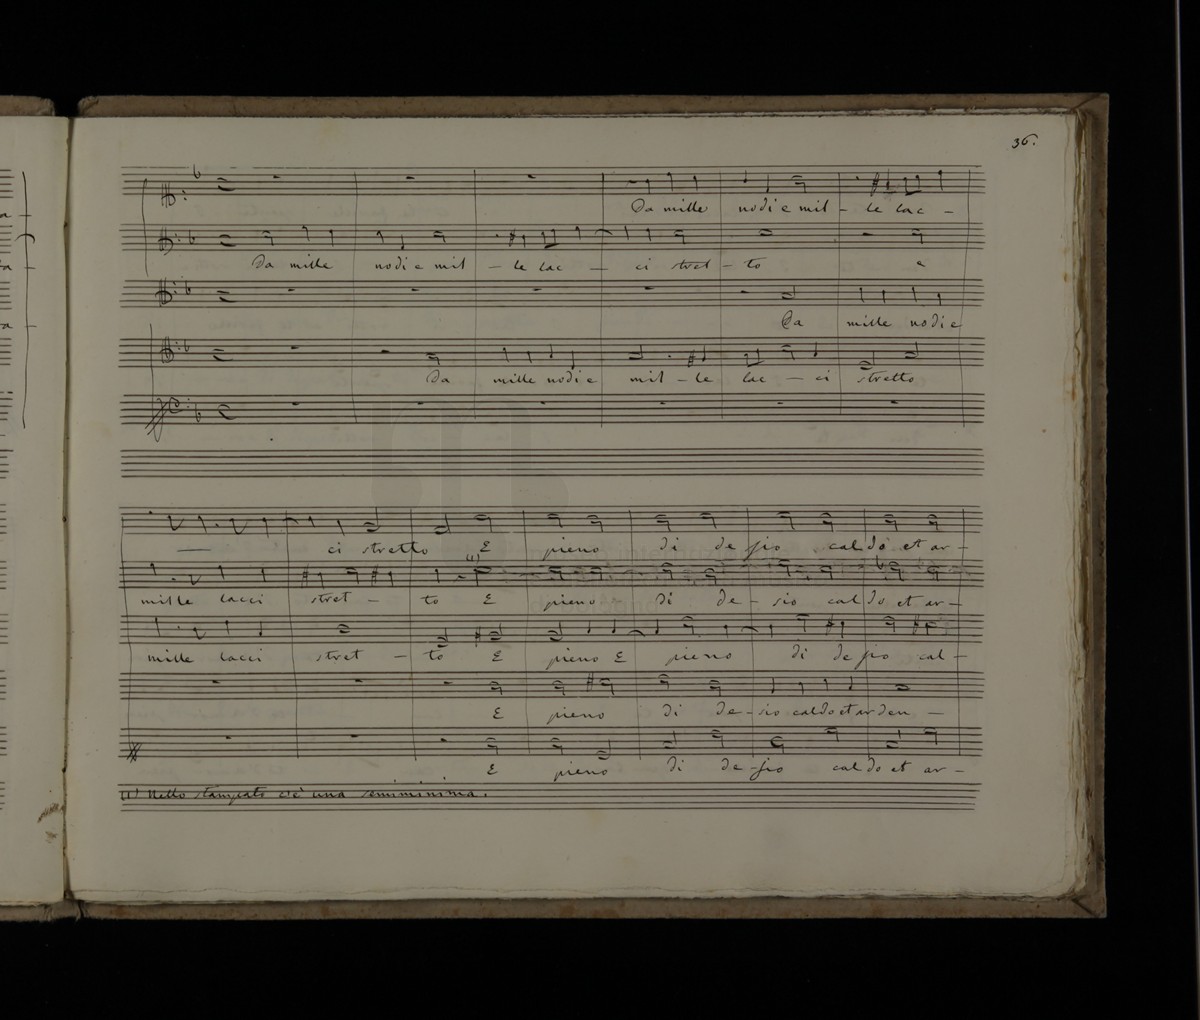 36.
Da mille nodi e mil - le lac -
Da mille nodi e mil - le lac - ci stret - to e
Da mille nodi e
Da mille nodi e mil - le lac - ci stretto
ci stretto E pieno di desio caldo et ar -
(1)
mille lacci stret - to E pieno di de - sio caldo et ar -
mille lacci stret - to E pieno E pieno di desio cal -
E pieno di de - sio caldo et arden -
E pieno di de - sio caldo et ar -
(1) Nello stampato c'è una semiminima.